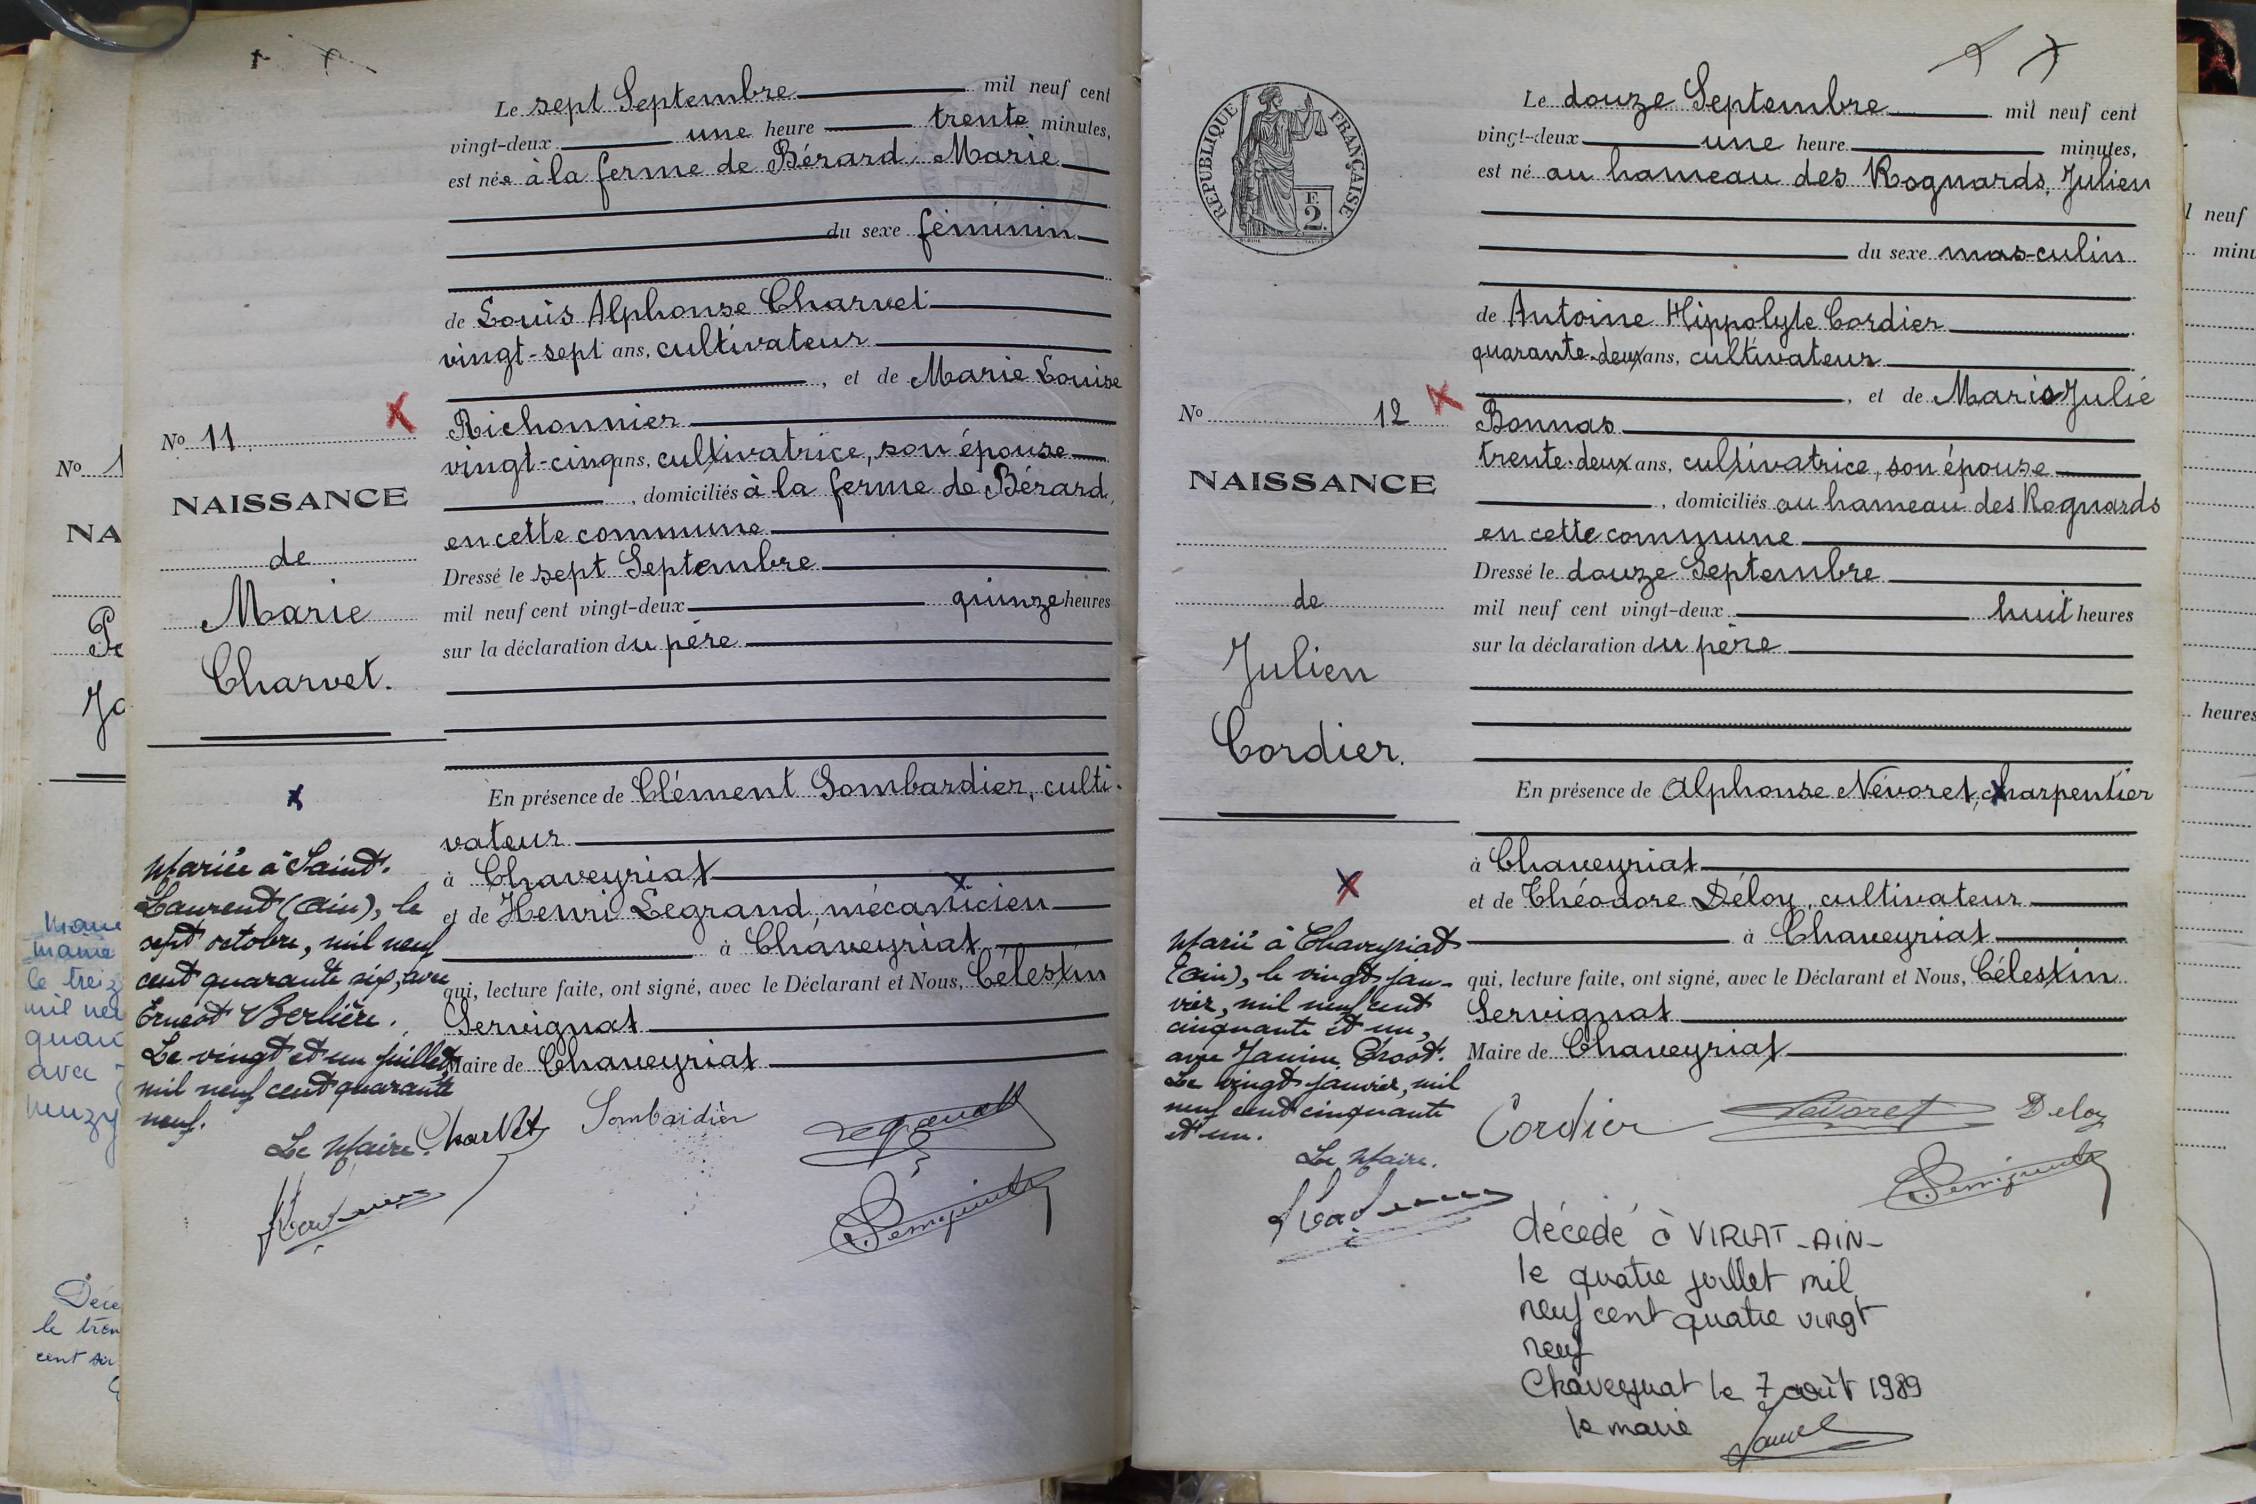 Le sept Septembre mil neuf cent
vingt-deux une heure trente minutes,
est née à la ferme de Bérard Marie
du sexe féminin
de Louis Alphonse Charvet
vingt-sept ans, cultivateur
, et de Marie Louise
Richonnier
vingt-cinq ans, cultivatrice, son épouse
, domiciliés à la ferme de Bérard,
en cette commune
Dressé le sept Septembre
mil neuf cent vingt-deux quinze heures
sur la déclaration du père
En présence de Clément Sombardier, culti-
vateur
à Chaveyriat
et de Henri Legrand, mécanicien
à Chaveyriat
qui, lecture faite, ont signé, avec le Déclarant et Nous, Célestin
Servignat
Maire de Chaveyriat
No 11
NAISSANCE
de
Marie
Charvet.
Mariée à Saint-
Laurent (Ain), le
sept octobre, mil neuf
cent quarante six, avec
Ernest Berlière.
Le vingt et un juillet
mil neuf cent quarante
neuf.
Le Maire.
Charvet
Sombardier
Legrand
RÉPUBLIQUE FRANÇAISE
F.
2.
Le douze Septembre mil neuf cent
vingt-deux une heure minutes,
est né au hameau des Rognards, Julien
du sexe masculin
de Antoine Hippolyte Cordier
quarante-deux ans, cultivateur
, et de Marie Julie
Bonnas
trente-deux ans, cultivatrice, son épouse
, domiciliés au hameau des Rognards
en cette commune
Dressé le douze Septembre
mil neuf cent vingt-deux huit heures
sur la déclaration du père
En présence de Alphonse Névoret, charpentier
à Chaveyriat
et de Théodore Déloy, cultivateur
à Chaveyriat
qui, lecture faite, ont signé, avec le Déclarant et Nous, Célestin
Servignat
Maire de Chaveyriat
No 12
NAISSANCE
de
Julien
Cordier.
Marié à Chaveyriat
(Ain), le vingt jan-
vier, mil neuf cent
cinquante et un,
avec Janine
Le vingt janvier, mil
neuf cent cinquante
et un.
Le Maire.
Cordier
Névoret
Deloy
décédé à VIRIAT -AIN-
le quatre juillet mil
neuf cent quatre vingt
neuf
Chaveyriat le 7 août 1989
le maire
No 1
NA
le treiz
quar
avec
Décé
le tren
l neuf
minu
heures